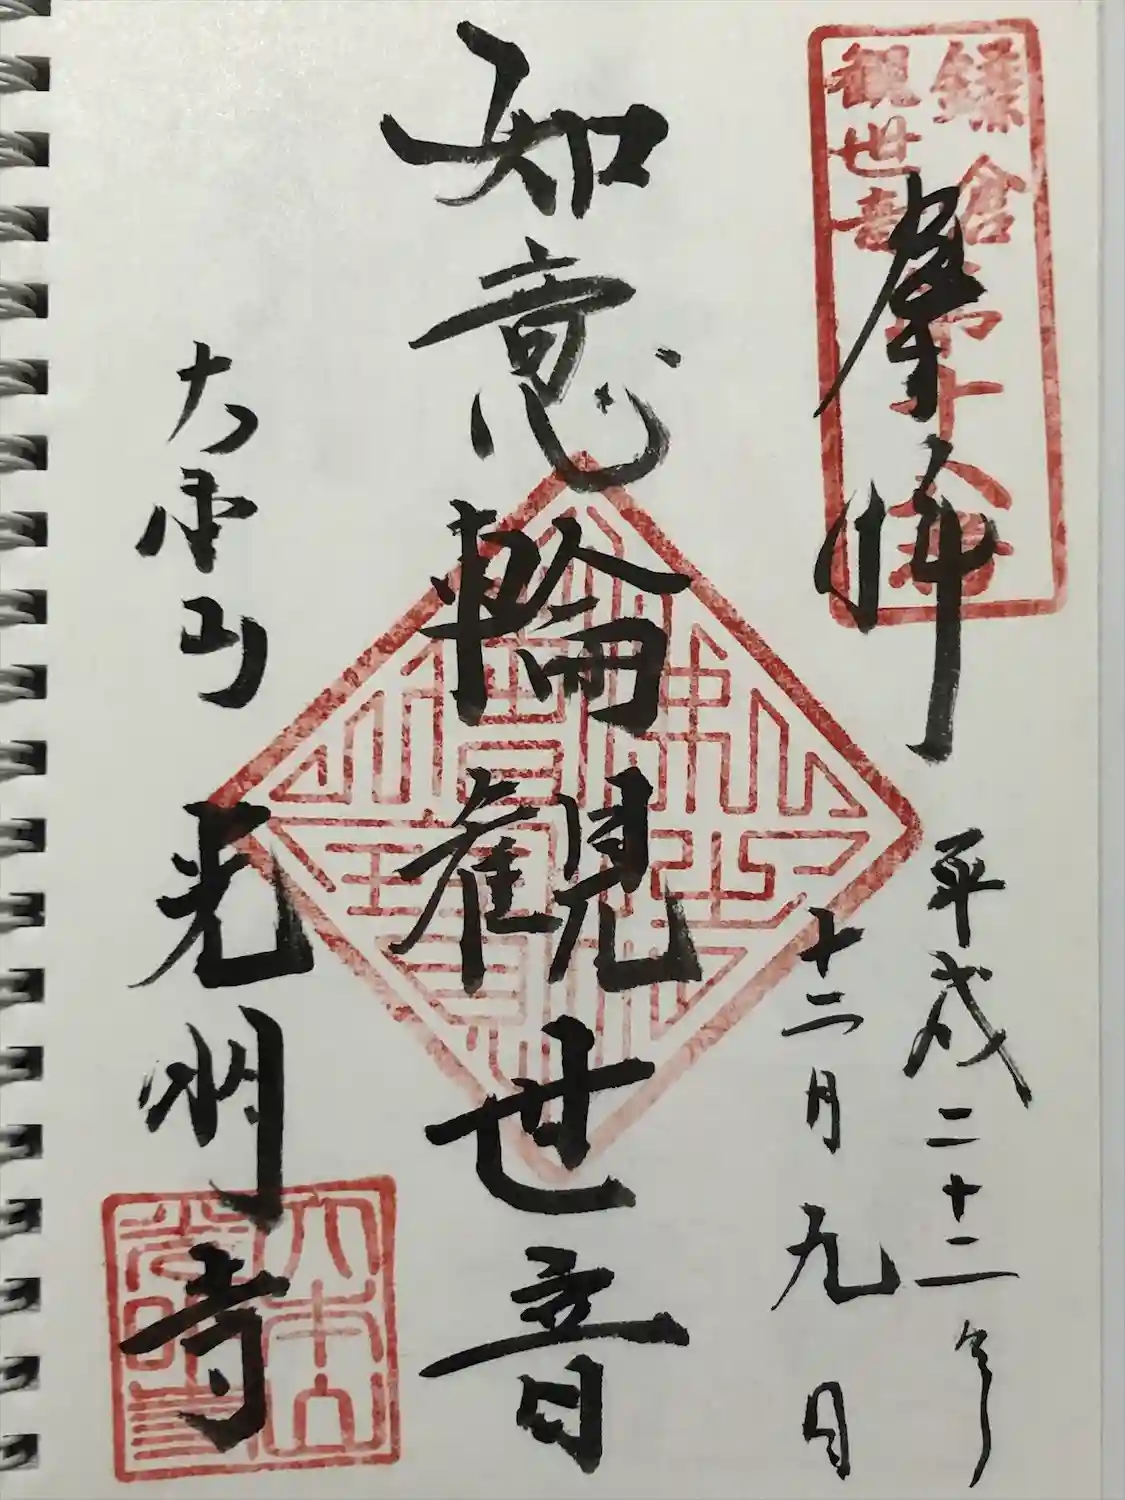 鎌倉
観世音
第十八番
奉拝
平成二十二年
十二月九日
如意輪観世音
大本山 光明寺
大本山
光明寺